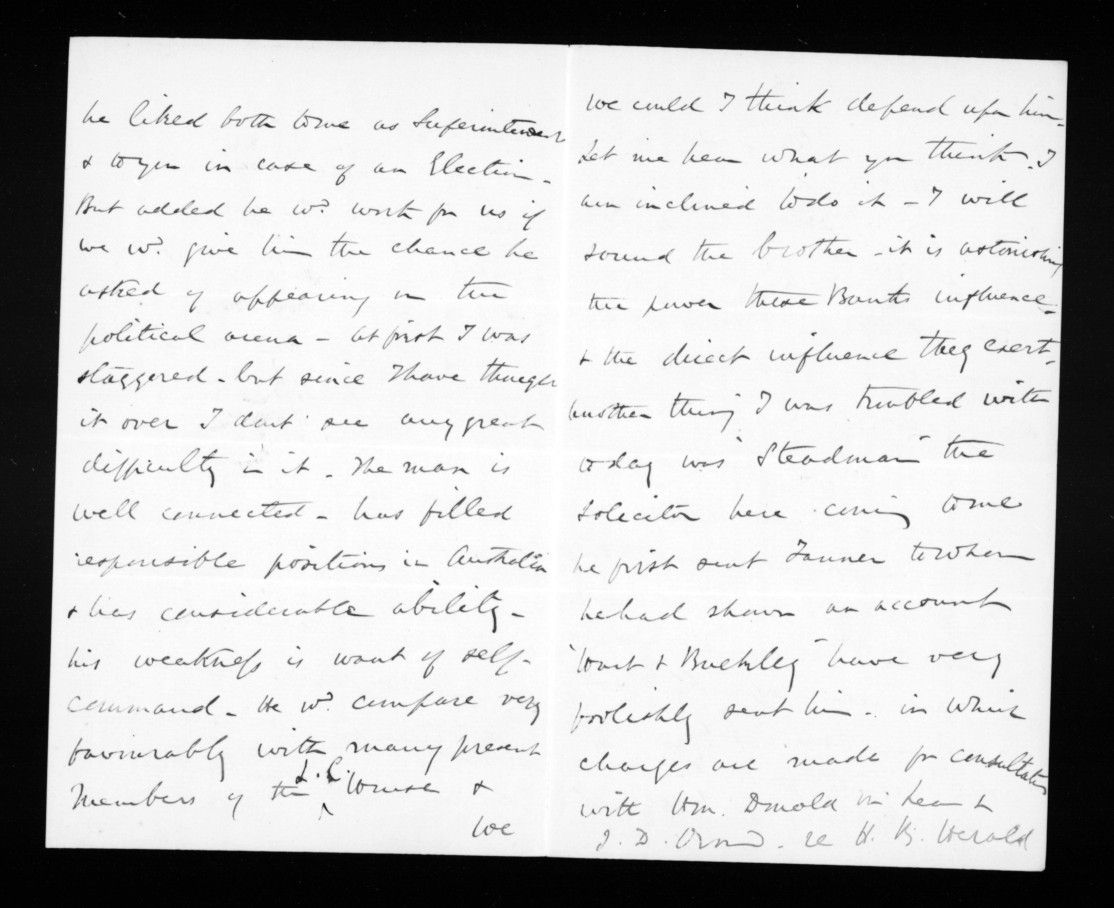 he liked both to me as Superintendent
& to you in case of an Election -
But added he wd. work for us if
we wd. give him the chance he
asked of appearing in the
political arena - at first I was
staggered - but since I have thought
it over I dont see any great
difficulty in it - The man is
well connected - has filled
responsible positions in Australia
& has considerable ability -
his weakness is want of self-
command - He wd. compare very
favourably with many present
Members of the L.C. House &
we
we could I think depend upon him -
Let me hear what you think. I
am inclined to do it - I will
sound the brother - it is astonishing
the power these Banks influence -
& the direct influence they exert -
another thing I was troubled with
today was "Steadman" the
Solicitor here coming to me
he first sent Tanner to whom
he had shown an account
"Hart & Buckley" have very
foolishly sent him - in which
charges are made for consultation
with Hon. Donald McLean &
J. D. Ormond - re H. B. Herald